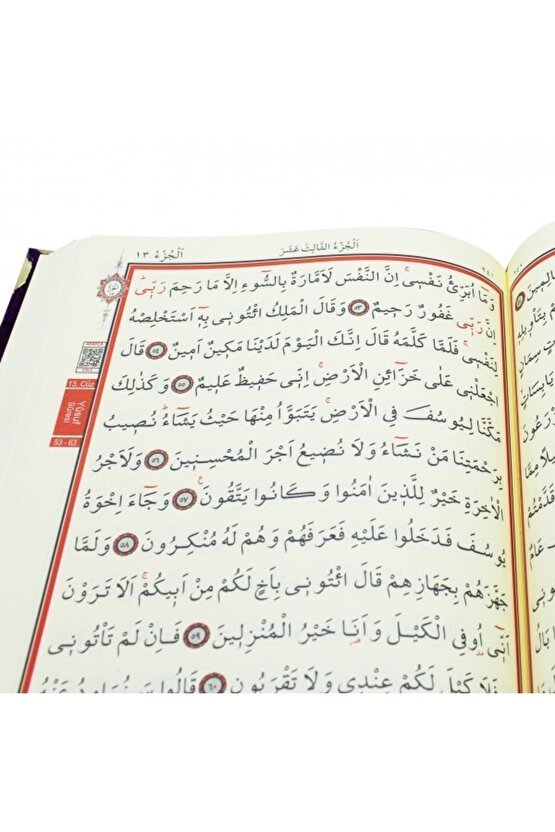 اَلْجُزْءُ الثَّالِثَ عَشَرَ
اَلْجُزْءُ ١٣
٢٤١
وَمَٓا اُبَرِّئُ نَفْسٖيۚ اِنَّ النَّفْسَ لَاَمَّارَةٌ بِالسُّٓوءِ اِلَّا مَا رَحِمَ رَبّٖيۜ
اِنَّ رَبّٖي غَفُورٌ رَحٖيمٌ ٥٣ وَقَالَ الْمَلِكُ ائْتُونٖي بِهٖٓ اَسْتَخْلِصْهُ
لِنَفْسٖيۚ فَلَمَّا كَلَّمَهُ قَالَ اِنَّكَ الْيَوْمَ لَدَيْنَا مَكٖينٌ اَمٖينٌ ٥٤ قَالَ
اجْعَلْنٖي عَلٰى خَزَٓائِنِ الْاَرْضِۚ اِنّٖي حَفٖيظٌ عَلٖيمٌ ٥٥ وَكَذٰلِكَ
مَكَّنَّا لِيُوسُفَ فِي الْاَرْضِۚ يَتَبَوَّاُ مِنْهَا حَيْثُ يَشَٓاءُۜ نُصٖيبُ
بِرَحْمَتِنَا مَنْ نَشَٓاءُ وَلَا نُضٖيعُ اَجْرَ الْمُحْسِنٖينَ ٥٦ وَلَاَجْرُ
الْاٰخِرَةِ خَيْرٌ لِلَّذٖينَ اٰمَنُوا وَكَانُوا يَتَّقُونَۚ ٥٧ وَجَٓاءَ اِخْوَةُ
يُوسُفَ فَدَخَلُوا عَلَيْهِ فَعَرَفَهُمْ وَهُمْ لَهُ مُنْكِرُونَ ٥٨ وَلَمَّا
جَهَّزَهُمْ بِجَهَازِهِمْ قَالَ ائْتُونٖي بِاَخٍ لَكُمْ مِنْ اَبٖيكُمْۚ اَلَا تَرَوْنَ
اَنّٖٓي اُو۫فِي الْكَيْلَ وَاَنَا۬ خَيْرُ الْمُنْزِلٖينَ ٥٩ فَاِنْ لَمْ تَأْتُونٖي
فَلَا كَيْلَ لَكُمْ عِنْدٖي وَلَا تَقْرَبُونِ ٦٠ قَالُوا سَنُرَاوِدُ عَنْهُ
13. Cüz
Yûsuf
Sûresi
53 - 63